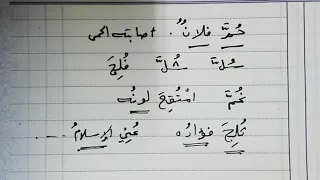 حُمَّ فلانٌ . أصابته الحمى
سُلَّ شُلَّ فُلِجَ
غُمَّ امْتُقِعَ لونُه
ثُلِجَ فؤادُه عُنِيَ الإسلامُ ....